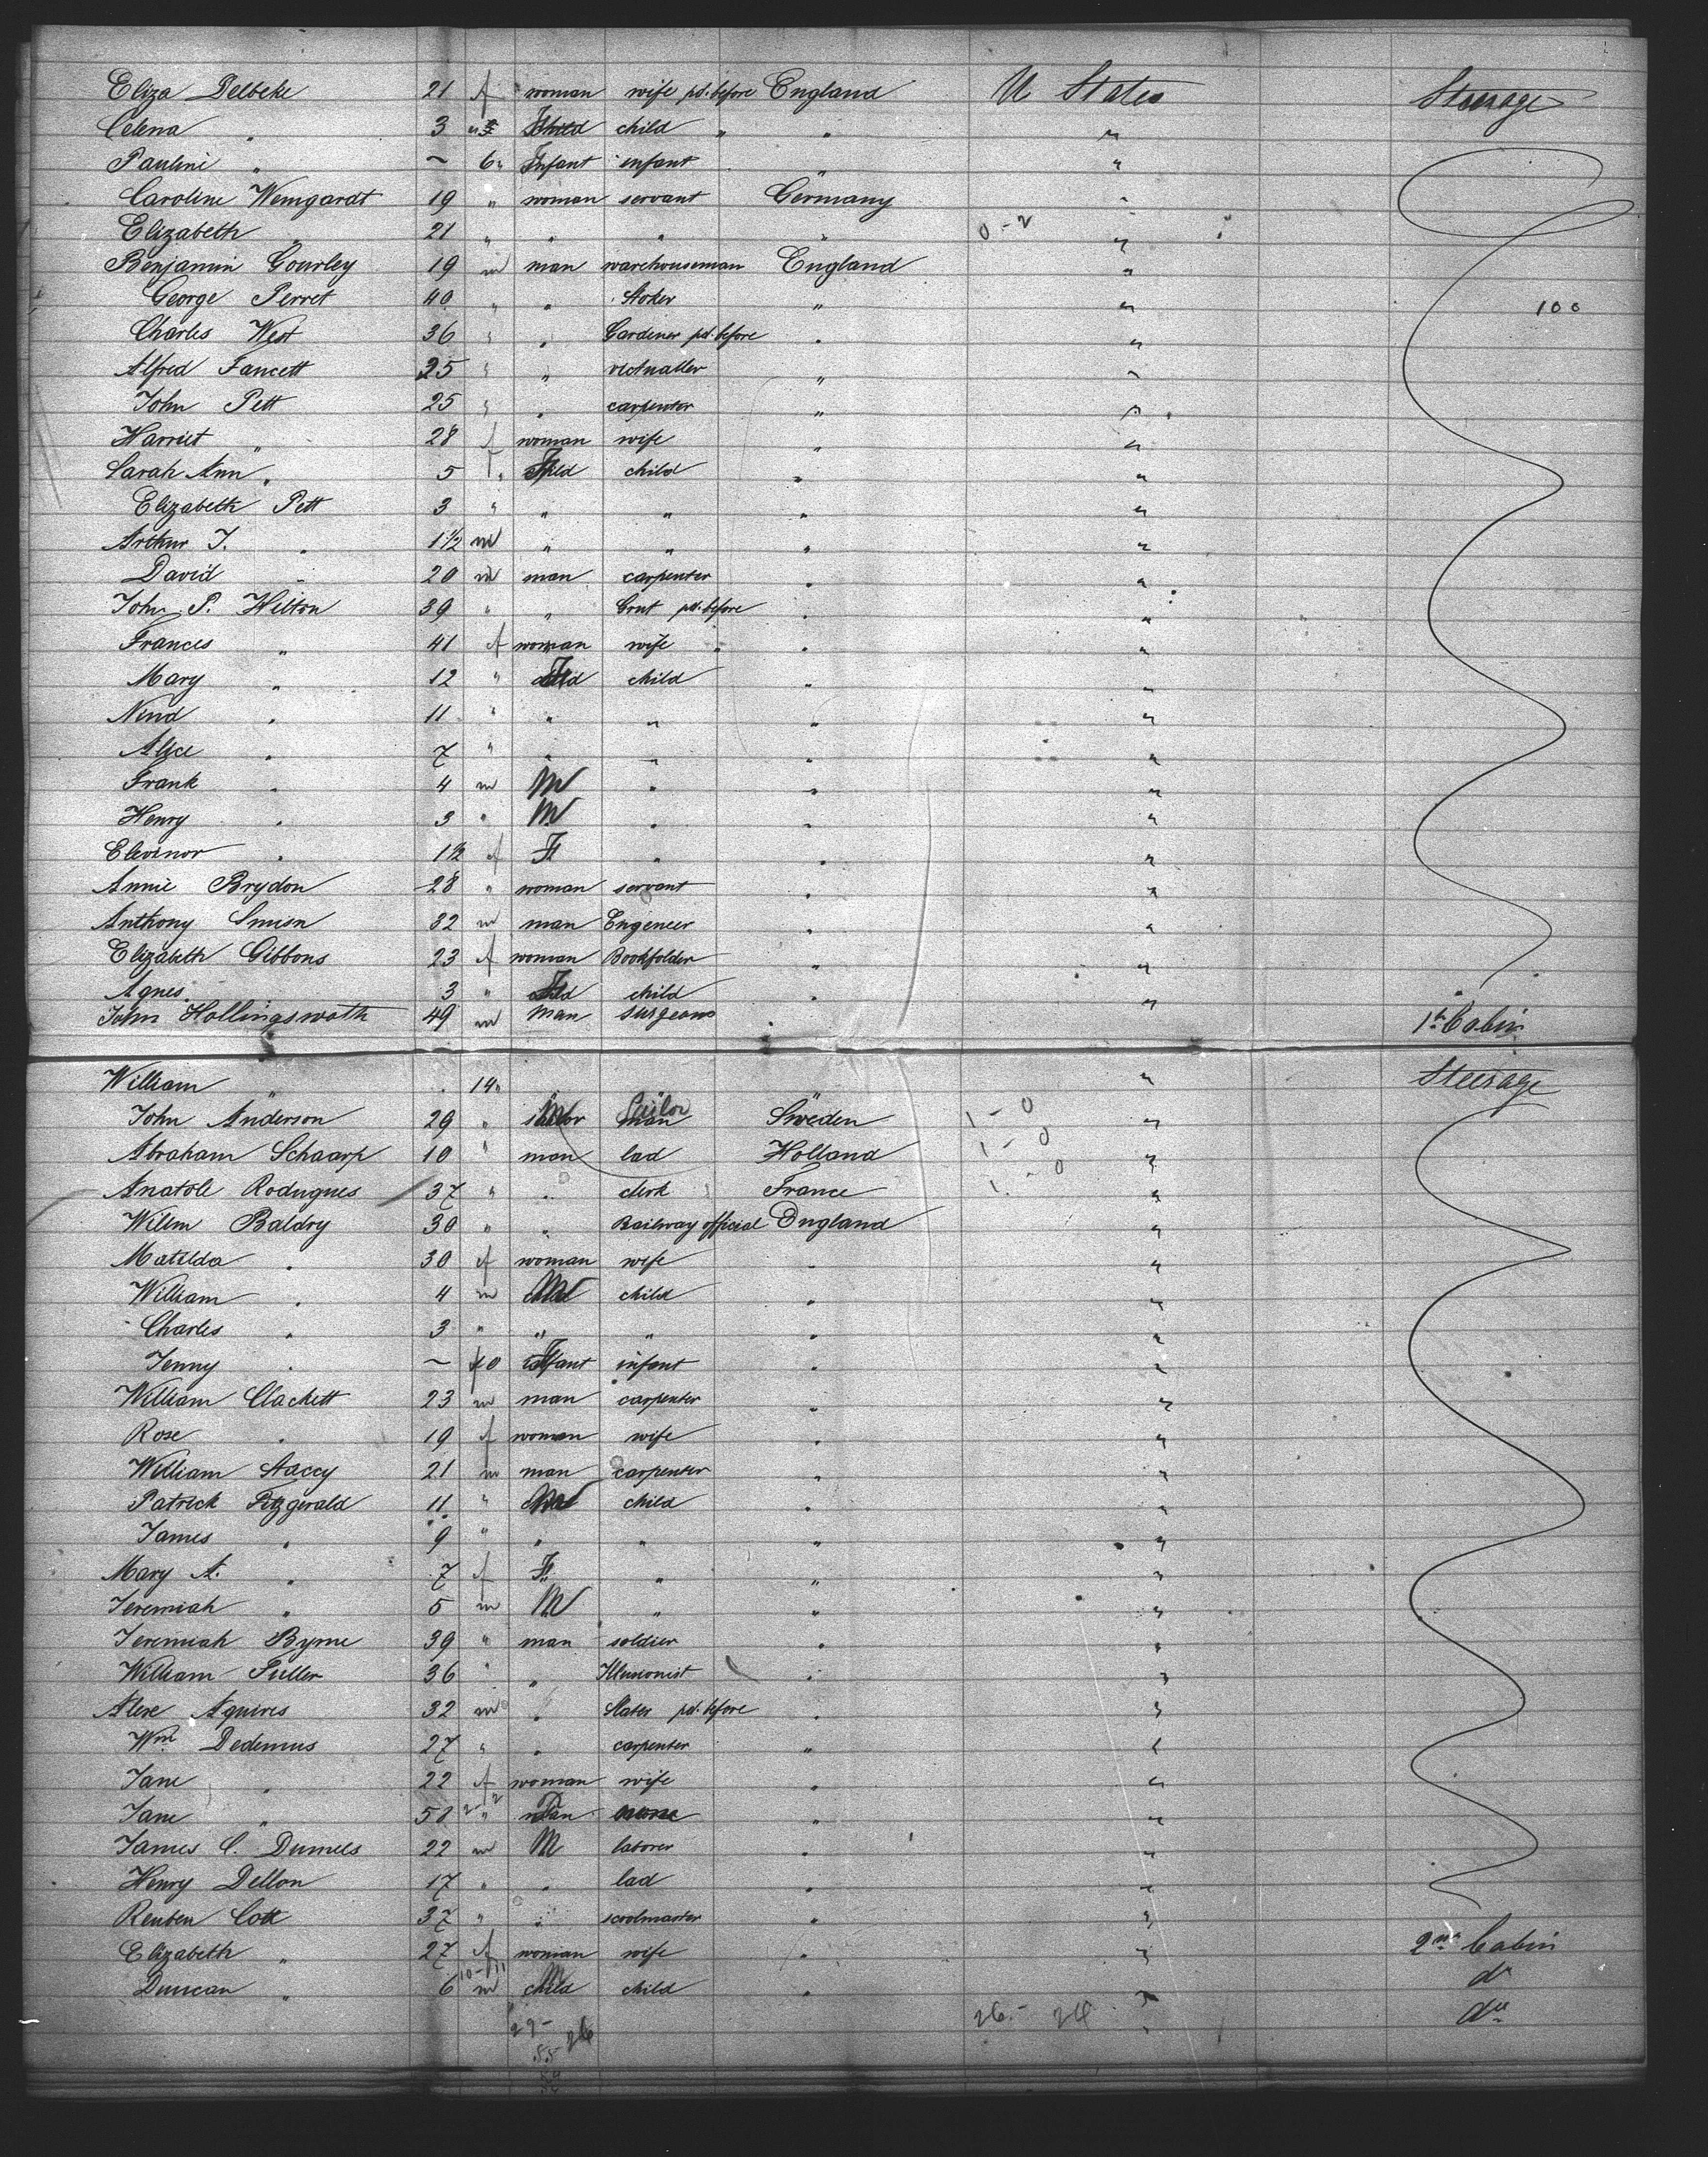 Eliza Delbeke 21 f woman wife pd. before England U States Steerage
Celena " 3 " child child " " "
Pauline " ~ 6 " Infant infant " "
Caroline Wemgardt 19 " woman servant Germany "
Elizabeth " 21 " " " " 0-2 "
Benjamin Gourley 19 m man warehouseman England "
George Perret 40 " " Stoker " " 100
Charles West 36 " " Gardener pd. before " "
Alfred Fancett 25 " " victualler " "
John Pett 25 " " carpenter " "
Harriet " 28 f woman wife " "
Sarah Ann " 5 " F child " "
Elizabeth Pett 3 " " " " "
Arthur J. " 1 1/2 m " " " "
David " 20 m man carpenter " "
John P. Hilton 39 " " Gent pd. before " "
Frances " 41 f woman wife " " "
Mary " 12 " F child " "
Nind " 11 " " " " "
Alice " 7 " " " " "
Frank " 4 m M " " "
Henry " 3 " M " " "
Elevinor " 1 1/2 f F " " "
Annie Brydon 28 " woman servant " "
Anthony Simson 32 m man Engeneer " "
Elizabeth Gibbons 23 f woman Bookfolder " "
Agnes 3 " F child " "
John Hollingswoth 49 m man Surgeon " 1st Cabin
William " 14 " " Steerage
John Anderson 29 " M Sailor Sweden 1-0 "
Abraham Schaarp 10 " man lad Holland 1-0 "
Anatole Rodugues 37 " " clerk France 1-0 "
Willm Baldry 30 " " Railway official England "
Matilda " 30 f woman wife " "
William " 4 m M child " "
Charles " 3 " " " " "
Jenny " ~ f 10 Infant infant " "
William Clackett 23 m man carpenter " "
Rose " 19 f woman wife " "
William Staccy 21 m man carpenter " "
Patrick Fitzgerald 11 " M child " "
James " 9 " " " " "
Mary A. " 7 f F " " "
Jeremiah " 5 m M " " "
Jeremiah Byrne 39 " man soldier " "
William Fuller 36 " " Illusionist " "
Alere Aquires 32 m " Slater pd. before " "
Wm Dedemus 27 " " carpenter " "
Jane " 22 f woman wife " "
Jane " 50 " none " "
James C. Dumels 22 m M laborer " "
Henry Dellon 17 " " lad " "
Reuben Cott 37 " " scoolmaster " "
Elizabeth " 27 f woman wife " " 2nd Cabin
Duncan " 6 m child child " " do
29- 26 26- 24 " do
55